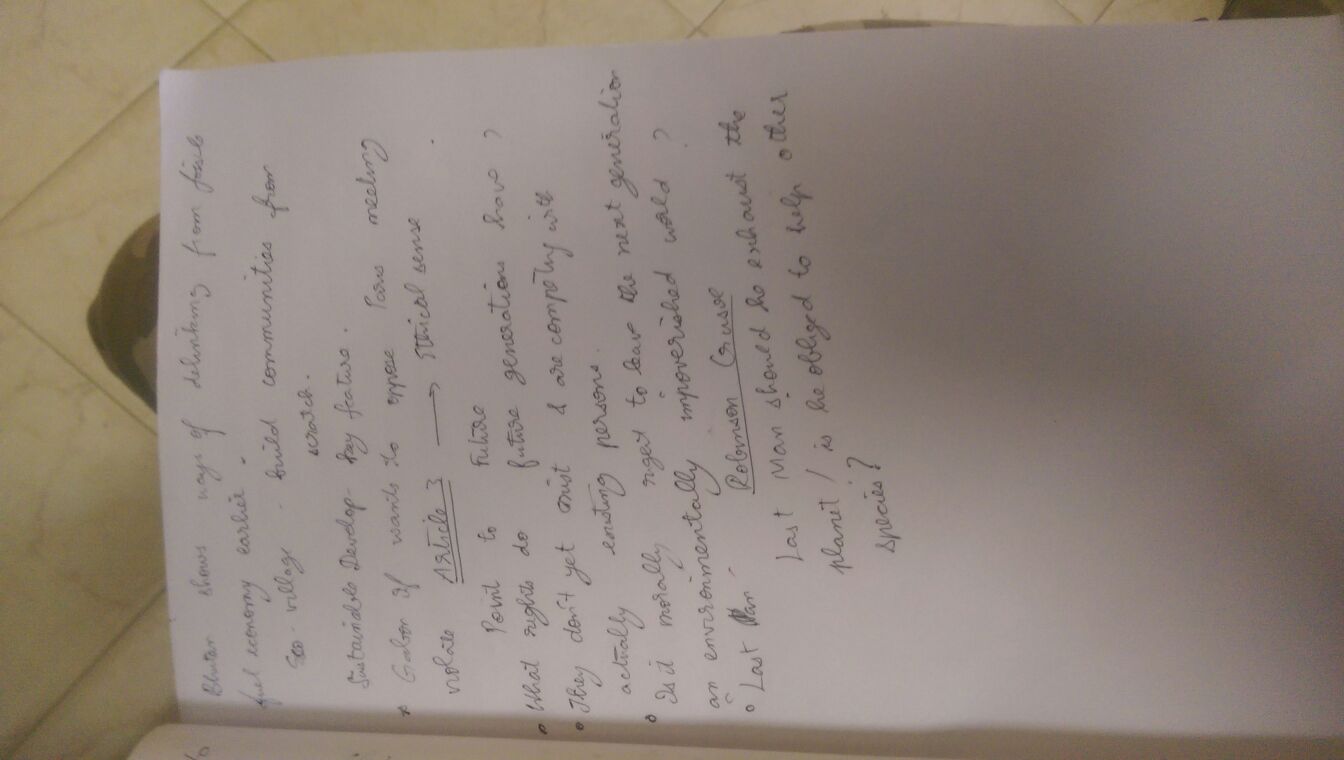 Bhutan shows ways of delinking from fossils
fuel economy earlier.
Eco-village - build communities from
scratch.
Sustainable Develop- key feature.
* Gabon if wants to oppose Paris meeting
violate Article 3 → ethical sense.
Point to Future
• What rights do future generations have?
• They don't yet exist & are competing with
actually existing persons.
• Is it morally right to leave the next generation
an environmentally impoverished world?
• Last Man - Robinson Crusoe
Last Man should he exhaust the
planet / is he obliged to help other
species?